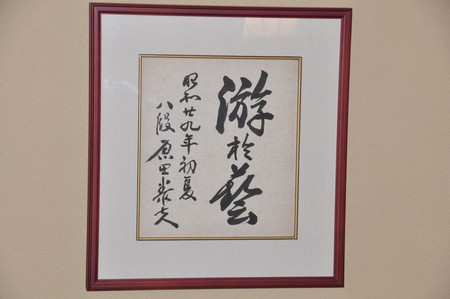 游於藝
昭和廿九年初夏
八段 原田泰夫